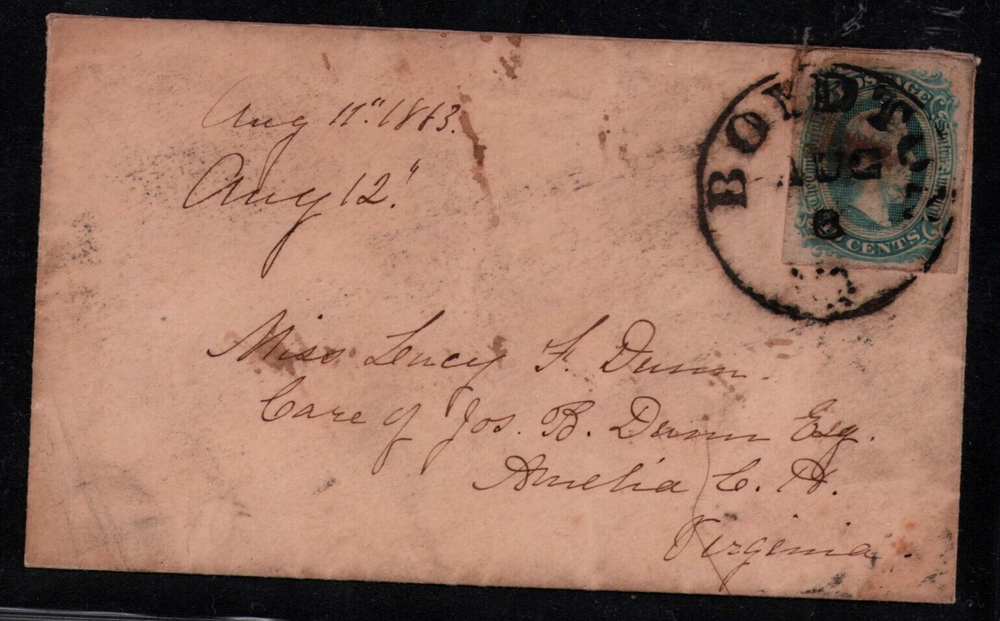 Aug 11" 1863.
Aug 12"
BOYDTON
AUG
8
POSTAGE
CENTS
Miss Lucy F. Dunn.
Care of Jos. B. Dunn Esq.
Amelia C. H.
Virginia.